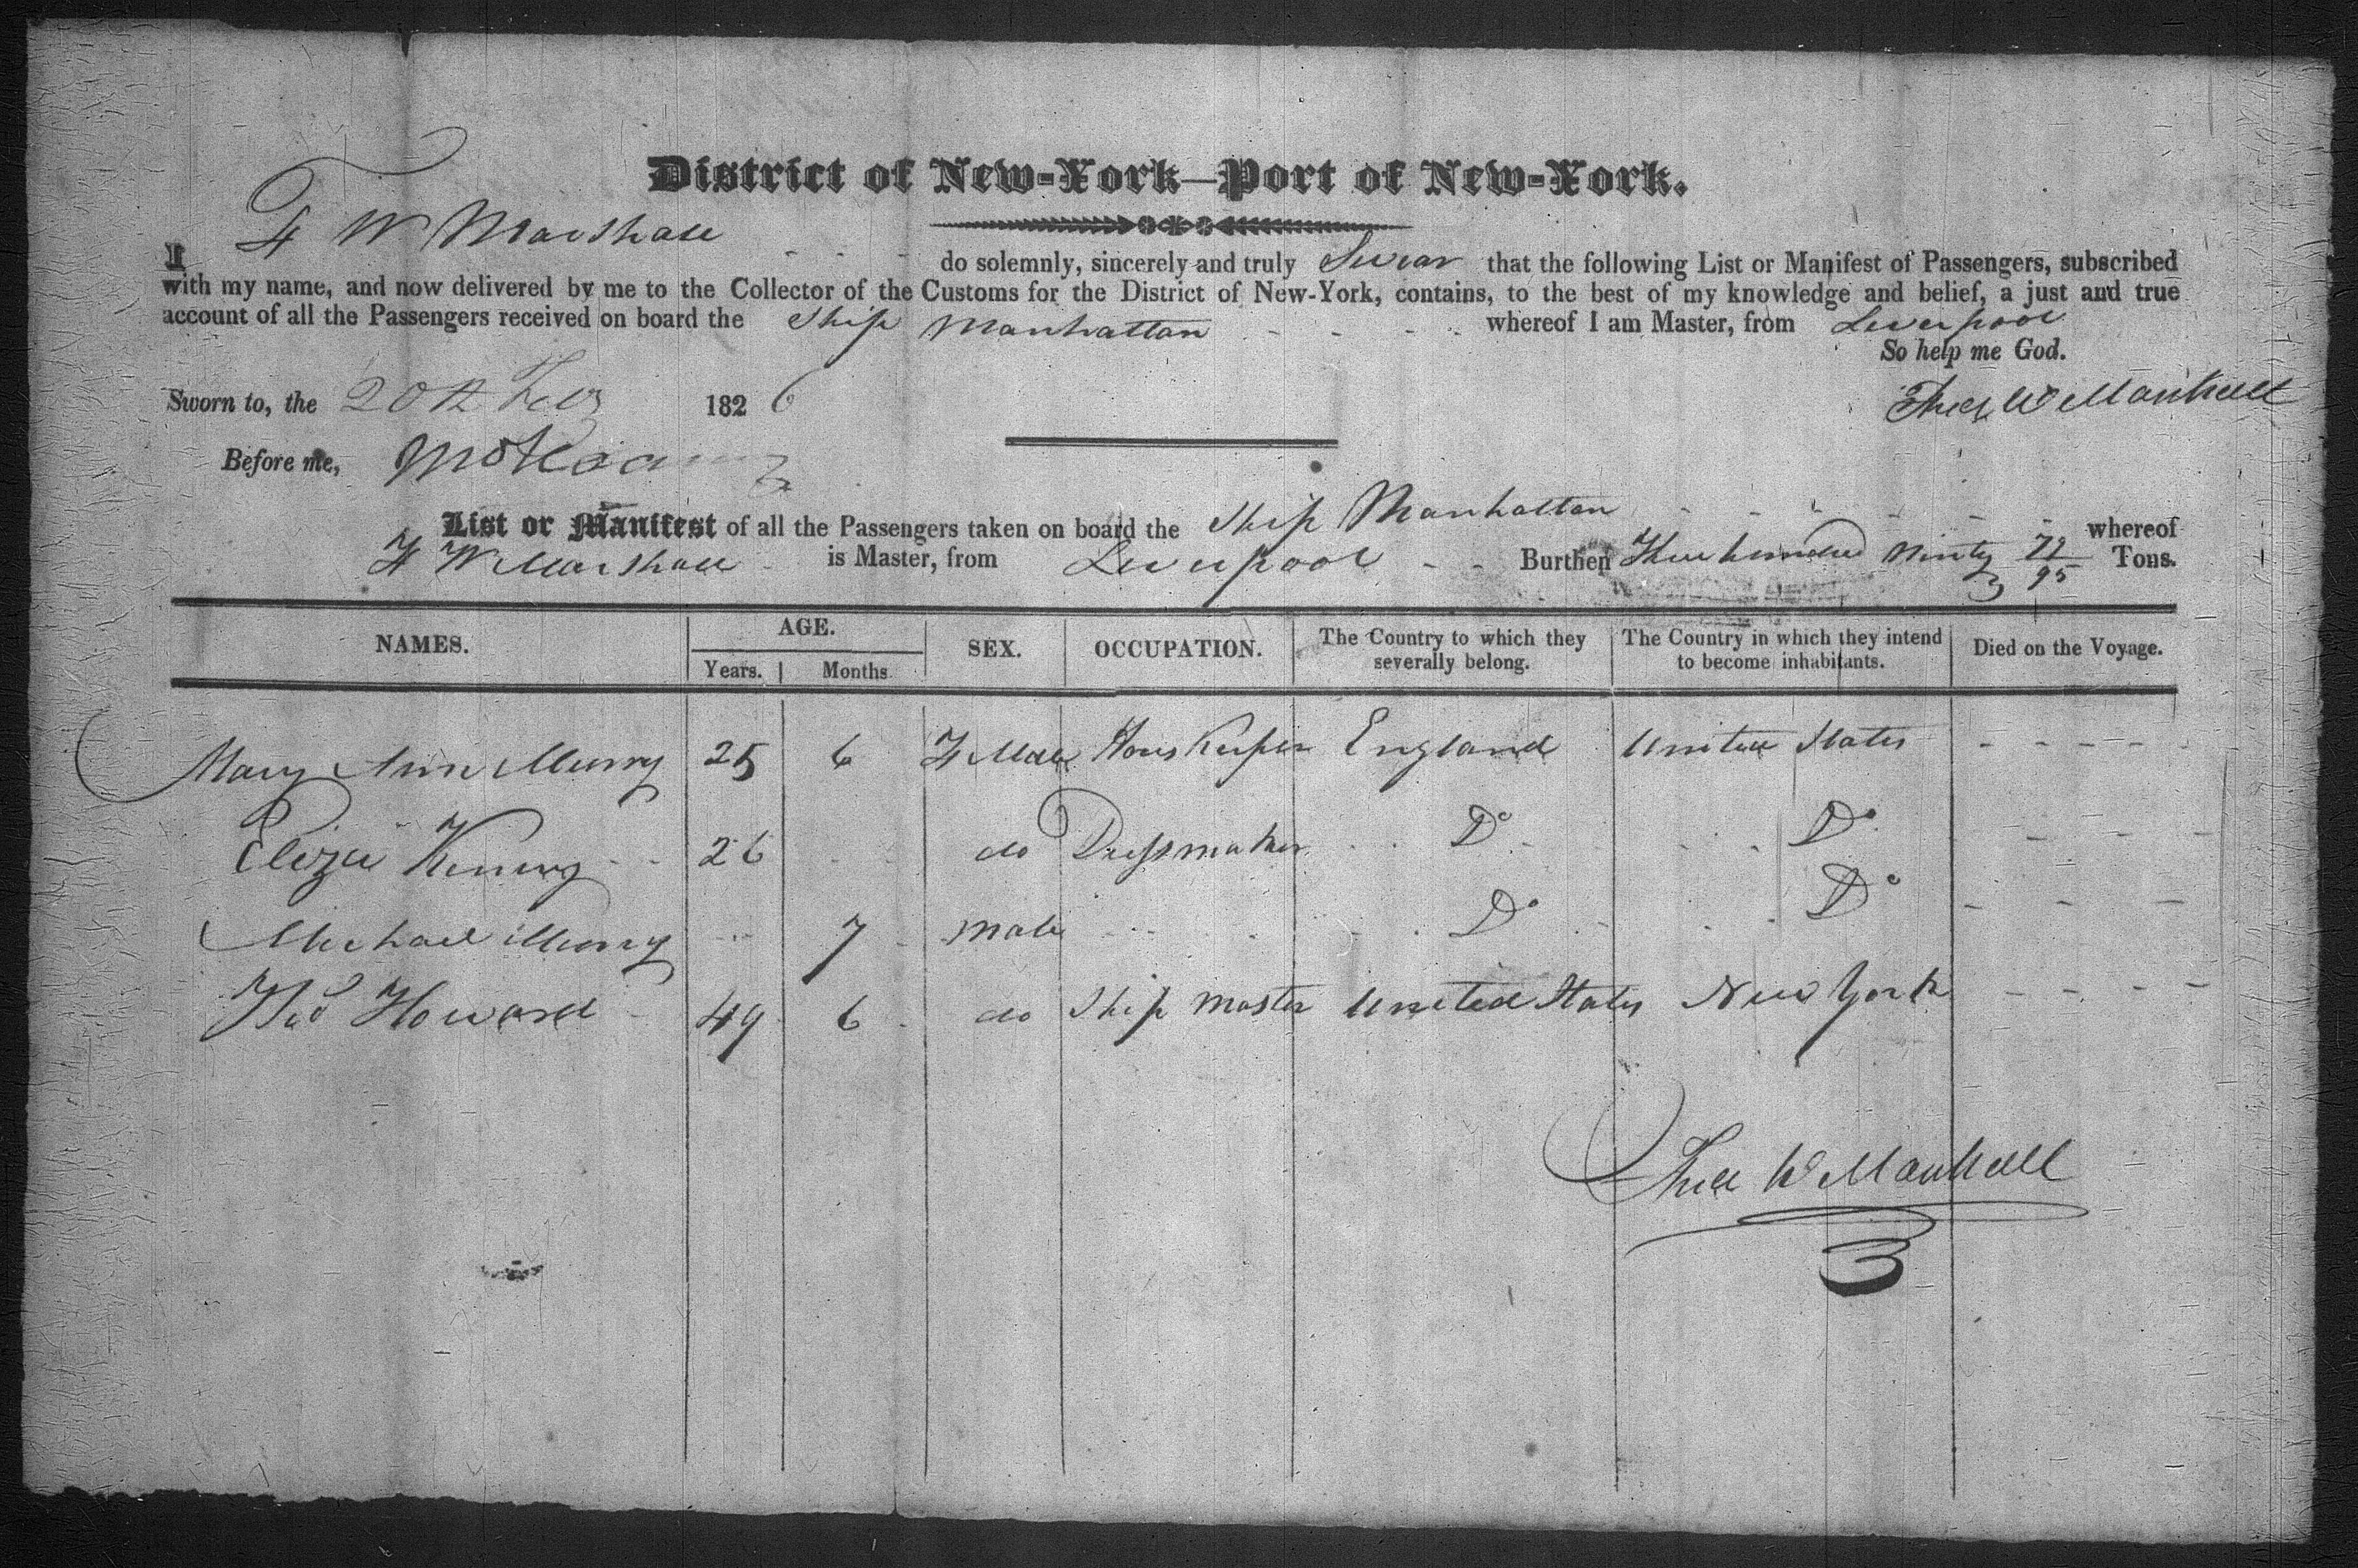 District of New-York—Port of New-York.
I F W Marshall do solemnly, sincerely and truly Swear that the following List or Manifest of Passengers, subscribed
with my name, and now delivered by me to the Collector of the Customs for the District of New-York, contains, to the best of my knowledge and belief, a just and true
account of all the Passengers received on board the Ship Manhattan - - - - whereof I am Master, from Liverpool
So help me God.
Sworn to, the 20th Feby 1826
W Marshall
Before me,
List or Manifest of all the Passengers taken on board the Ship Manhattan - - - - - - whereof
F W Marshall - is Master, from Liverpool - - Burthen Three hundred Ninty 72/95 Tons.
NAMES. AGE. SEX. OCCUPATION. The Country to which they severally belong. The Country in which they intend to become inhabitants. Died on the Voyage.
Years. Months
Mary Ann Murry 25 6 FMale Hous Keeper England United States - - - - -
Eliza 26 - - do Dressmaker Do Do - - - -
Michael Murry - - 7 male - - Do Do - - - -
Thos Howard 49 6 do Ship Master United States New York - - - -
W Marshall
3